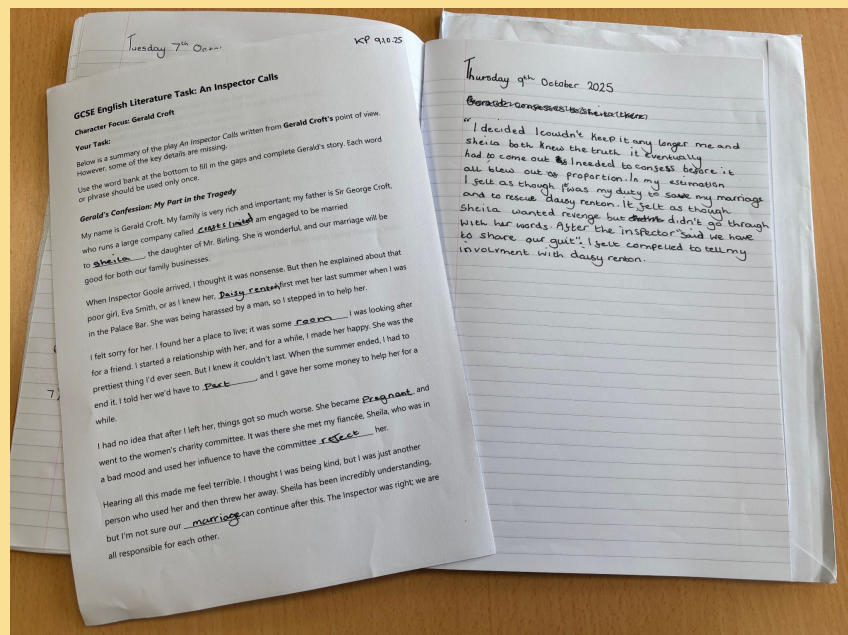 Tuesday 7th
KP 9.10.25
GCSE English Literature Task: An Inspector Calls
Character Focus: Gerald Croft
Your Task:
Below is a summary of the play An Inspector Calls written from Gerald Croft's point of view.
However, some of the key details are missing.
Use the word bank at the bottom to fill in the gaps and complete Gerald's story. Each word
or phrase should be used only once.
Gerald's Confession: My Part in the Tragedy
My name is Gerald Croft. My family is very rich and important; my father is Sir George Croft,
who runs a large company called crofts limited am engaged to be married
to sheila, the daughter of Mr. Birling. She is wonderful, and our marriage will be
good for both our family businesses.
When Inspector Goole arrived, I thought it was nonsense. But then he explained about that
poor girl, Eva Smith, or as I knew her, Daisy renton first met her last summer when I was
in the Palace Bar. She was being harassed by a man, so I stepped in to help her.
I felt sorry for her. I found her a place to live; it was some room I was looking after
for a friend. I started a relationship with her, and for a while, I made her happy. She was the
prettiest thing I'd ever seen. But I knew it couldn't last. When the summer ended, I had to
end it. I told her we'd have to Part, and I gave her some money to help her for a
while.
I had no idea that after I left her, things got so much worse. She became Pregnant and
went to the women's charity committee. It was there she met my fiancée, Sheila, who was in
a bad mood and used her influence to have the committee reject her.
Hearing all this made me feel terrible. I thought I was being kind, but I was just another
person who used her and then threw her away. Sheila has been incredibly understanding,
but I'm not sure our marriage can continue after this. The Inspector was right; we are
all responsible for each other.
7)
Thursday 9th October 2025
"I decided I couldn't keep it any longer me and
sheila both knew the truth it eventually
had to come out I needed to confess before it
all blew out of proportion. In my estimation
I felt as though I was my duty to save my marriage
and to rescue daisy renton. It felt as though
sheila wanted revenge but didn't go through
with her words. After the inspector "said we have
to share our guit". I felt compelled to tell my
involvment with daisy renton.